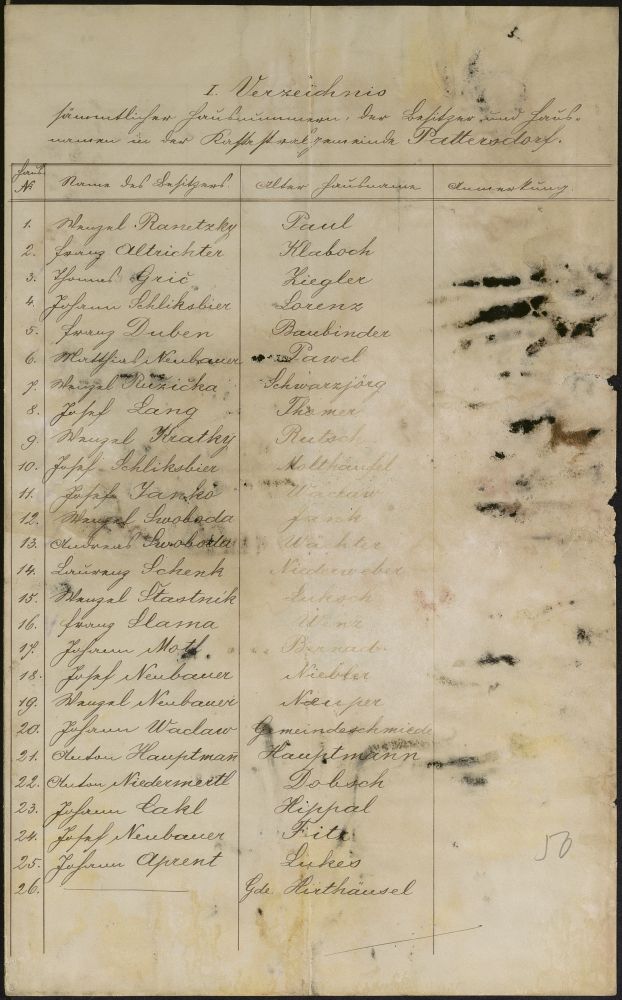 I. Verzeichnis
sämmtlicher Hausnummern, der Besitzer und Haus-
namen in der Katastralgemeinde Pattersdorf.
Haus № Name des Besitzers. Alter Hausname Anmerkung.
1. Wenzel Ranetzky Paul
2. Franz Altrichter Klaboch
3. Thomas Grič Ziegler
4. Johann Schliksbier Lorenz
5. Franz Duben Baubinder
6. Matthias Neubauer Pawel
7. Wenzel Ružička Schwarzjörg
8. Josef Lang Thomer
9. Wenzel Kratky Rutsch
10. Josef Schliksbier Molthäusl
11. Josef Janko Waclaw
12. Wenzel Swoboda Janik
13. Andreas Swoboda Wächter
14. Laurenz Schenk Niederweber
15. Wenzel Štastnik Luksch
16. Franz Slama Wenz
17. Johann Motl. Bernad
18. Josef Neubauer Niebler
19. Wenzel Neubauer
20. Johann Waclaw Gemeindeschmiede
21. Anton Hauptman Hauptmann
22. Anton Niedermertl Dobsch
23. Johann Cakl Hippal
24. Josef Neubauer
25. Johann Aprent Lukes
26. Gde. Hirthäusel
50